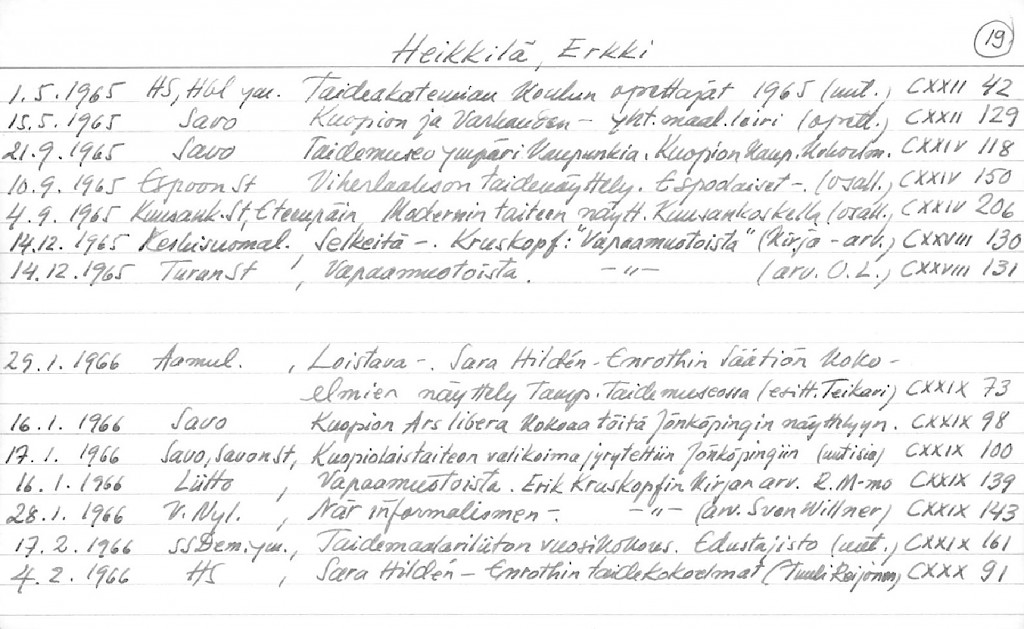 19
Heikkilä, Erkki
1.5.1965 HS, Hbl ym. Taideakatemian Koulun opettajat 1965 (uut.) CXXII 42
15.5.1965 Savo Kuopion ja Varkauden - yht. maal. leiri (opett.) CXXII 129
21.9.1965 Savo Taidemuseo ympäri Kaupunkia. Kuopion Kaup. Kokoelm. CXXIV 118
10.9.1965 Espoon St Viherlaakson taidenäyttely. Espoolaiset -. (osall.) CXXIV 150
4.9.1965 Kuusank. St, Eteenpäin, Modernin taiteen näytt. Kuusankoskella (osall.) CXXIV 206
14.12.1965 Keskisuomal. Selkeitä -. Kruskopf: "Vapaamuotoista" (Kirja - arv.) CXXVIII 130
14.12.1965 Turun St, Vapaamuotoista. -"- (arv. O.L.) CXXVIII 131
29.1.1966 Aamul., Loistava -. Sara Hildén - Enrothin Säätiön Koko-
elmien näyttely Tamp. Taidemuseossa (esitt. Teikari) CXXIX 73
16.1.1966 Savo Kuopion Ars libera Kokoaa töitä Jönköpingin näyttelyyn. CXXIX 98
17.1.1966 Savo, Savon St, Kuopiolaistaiteen valikoima jyrytettiin Jönköpingiin (uutisia) CXXIX 100
16.1.1966 Liitto, Vapaamuotoista. Erik Kruskopfin Kirjan arv. R. M-mo CXXIX 139
28.1.1966 V. Nyl., När informalismen -. -"- (arv. Sven Willner) CXXIX 143
17.2.1966 SSDem. ym., Taidemaalariliiton vuosikokous. Edustajisto (uut.) CXXIX 161
4.2.1966 HS, Sara Hildén - Enrothin taidekokoelmat (Tuuli Reijonen) CXXX 91